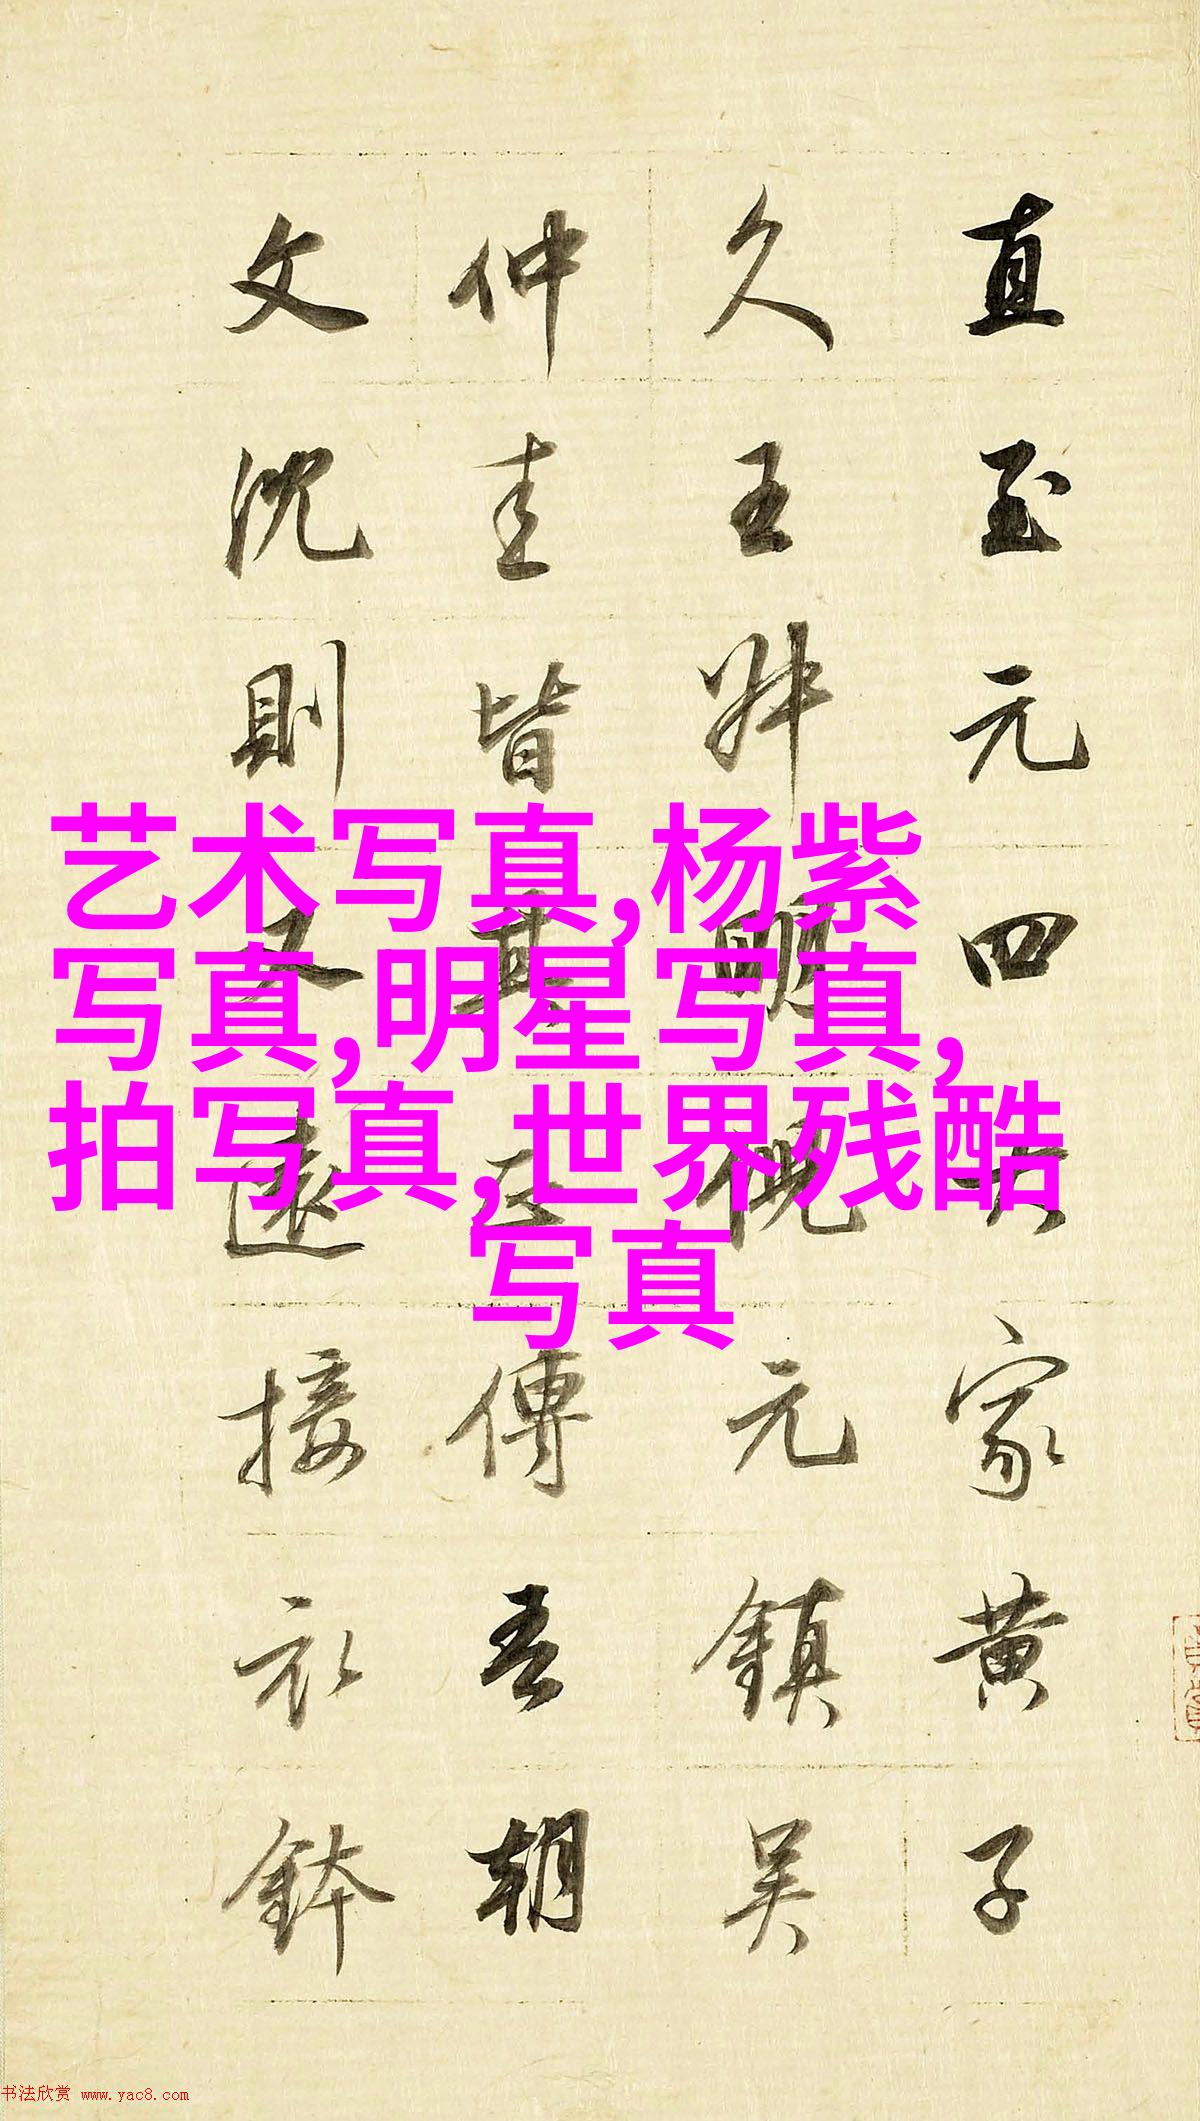 直至元四大家黄子
久王叔明倪元鎮吳
仲圭皆其正傳吾朝
文沈則又遠接衣鉢
艺术写真,杨紫
写真,明星写真,
拍写真,世界残酷
写真
书法欣赏 www.yac8.com